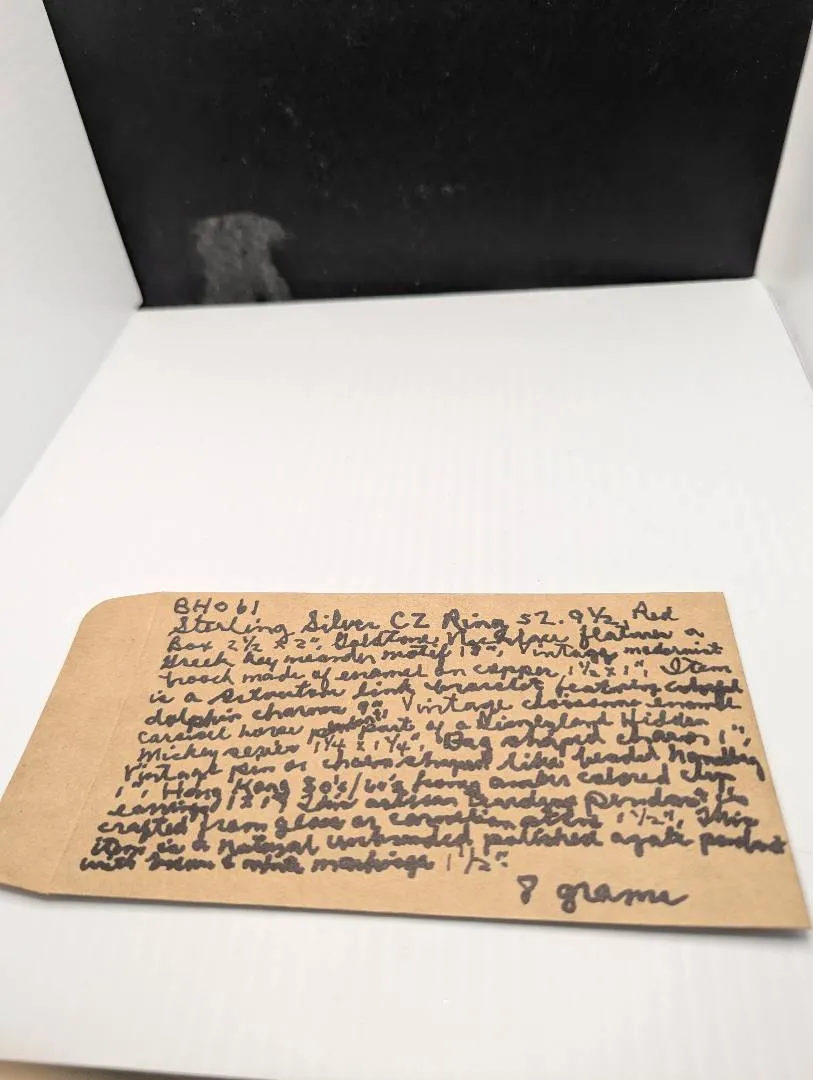 BH061
Sterling Silver CZ Ring SZ. 9½, Red
Box 2½ x 2", Goldtone Necklace features a
Greek key meander motif 18", Vintage modernist
brooch made of enamel on copper 1½ x 1", Item
is a link bracelet featuring colorful
dolphin charms 9" Vintage cloisonne enamel
carousel horse pendant, part of a Disneyland Hidden
Mickey series 1¼ x 1¼", Bag shaped charm 1",
Vintage pin or charm shaped like a beaded handbag
1", Hong Kong 50's/60's amber colored clip
earrings 1 x 1" This artisan pendant is
crafted from glass or carnelian 1½", This
item is a natural polished agate pendant
with & white markings 1½".
8 grams